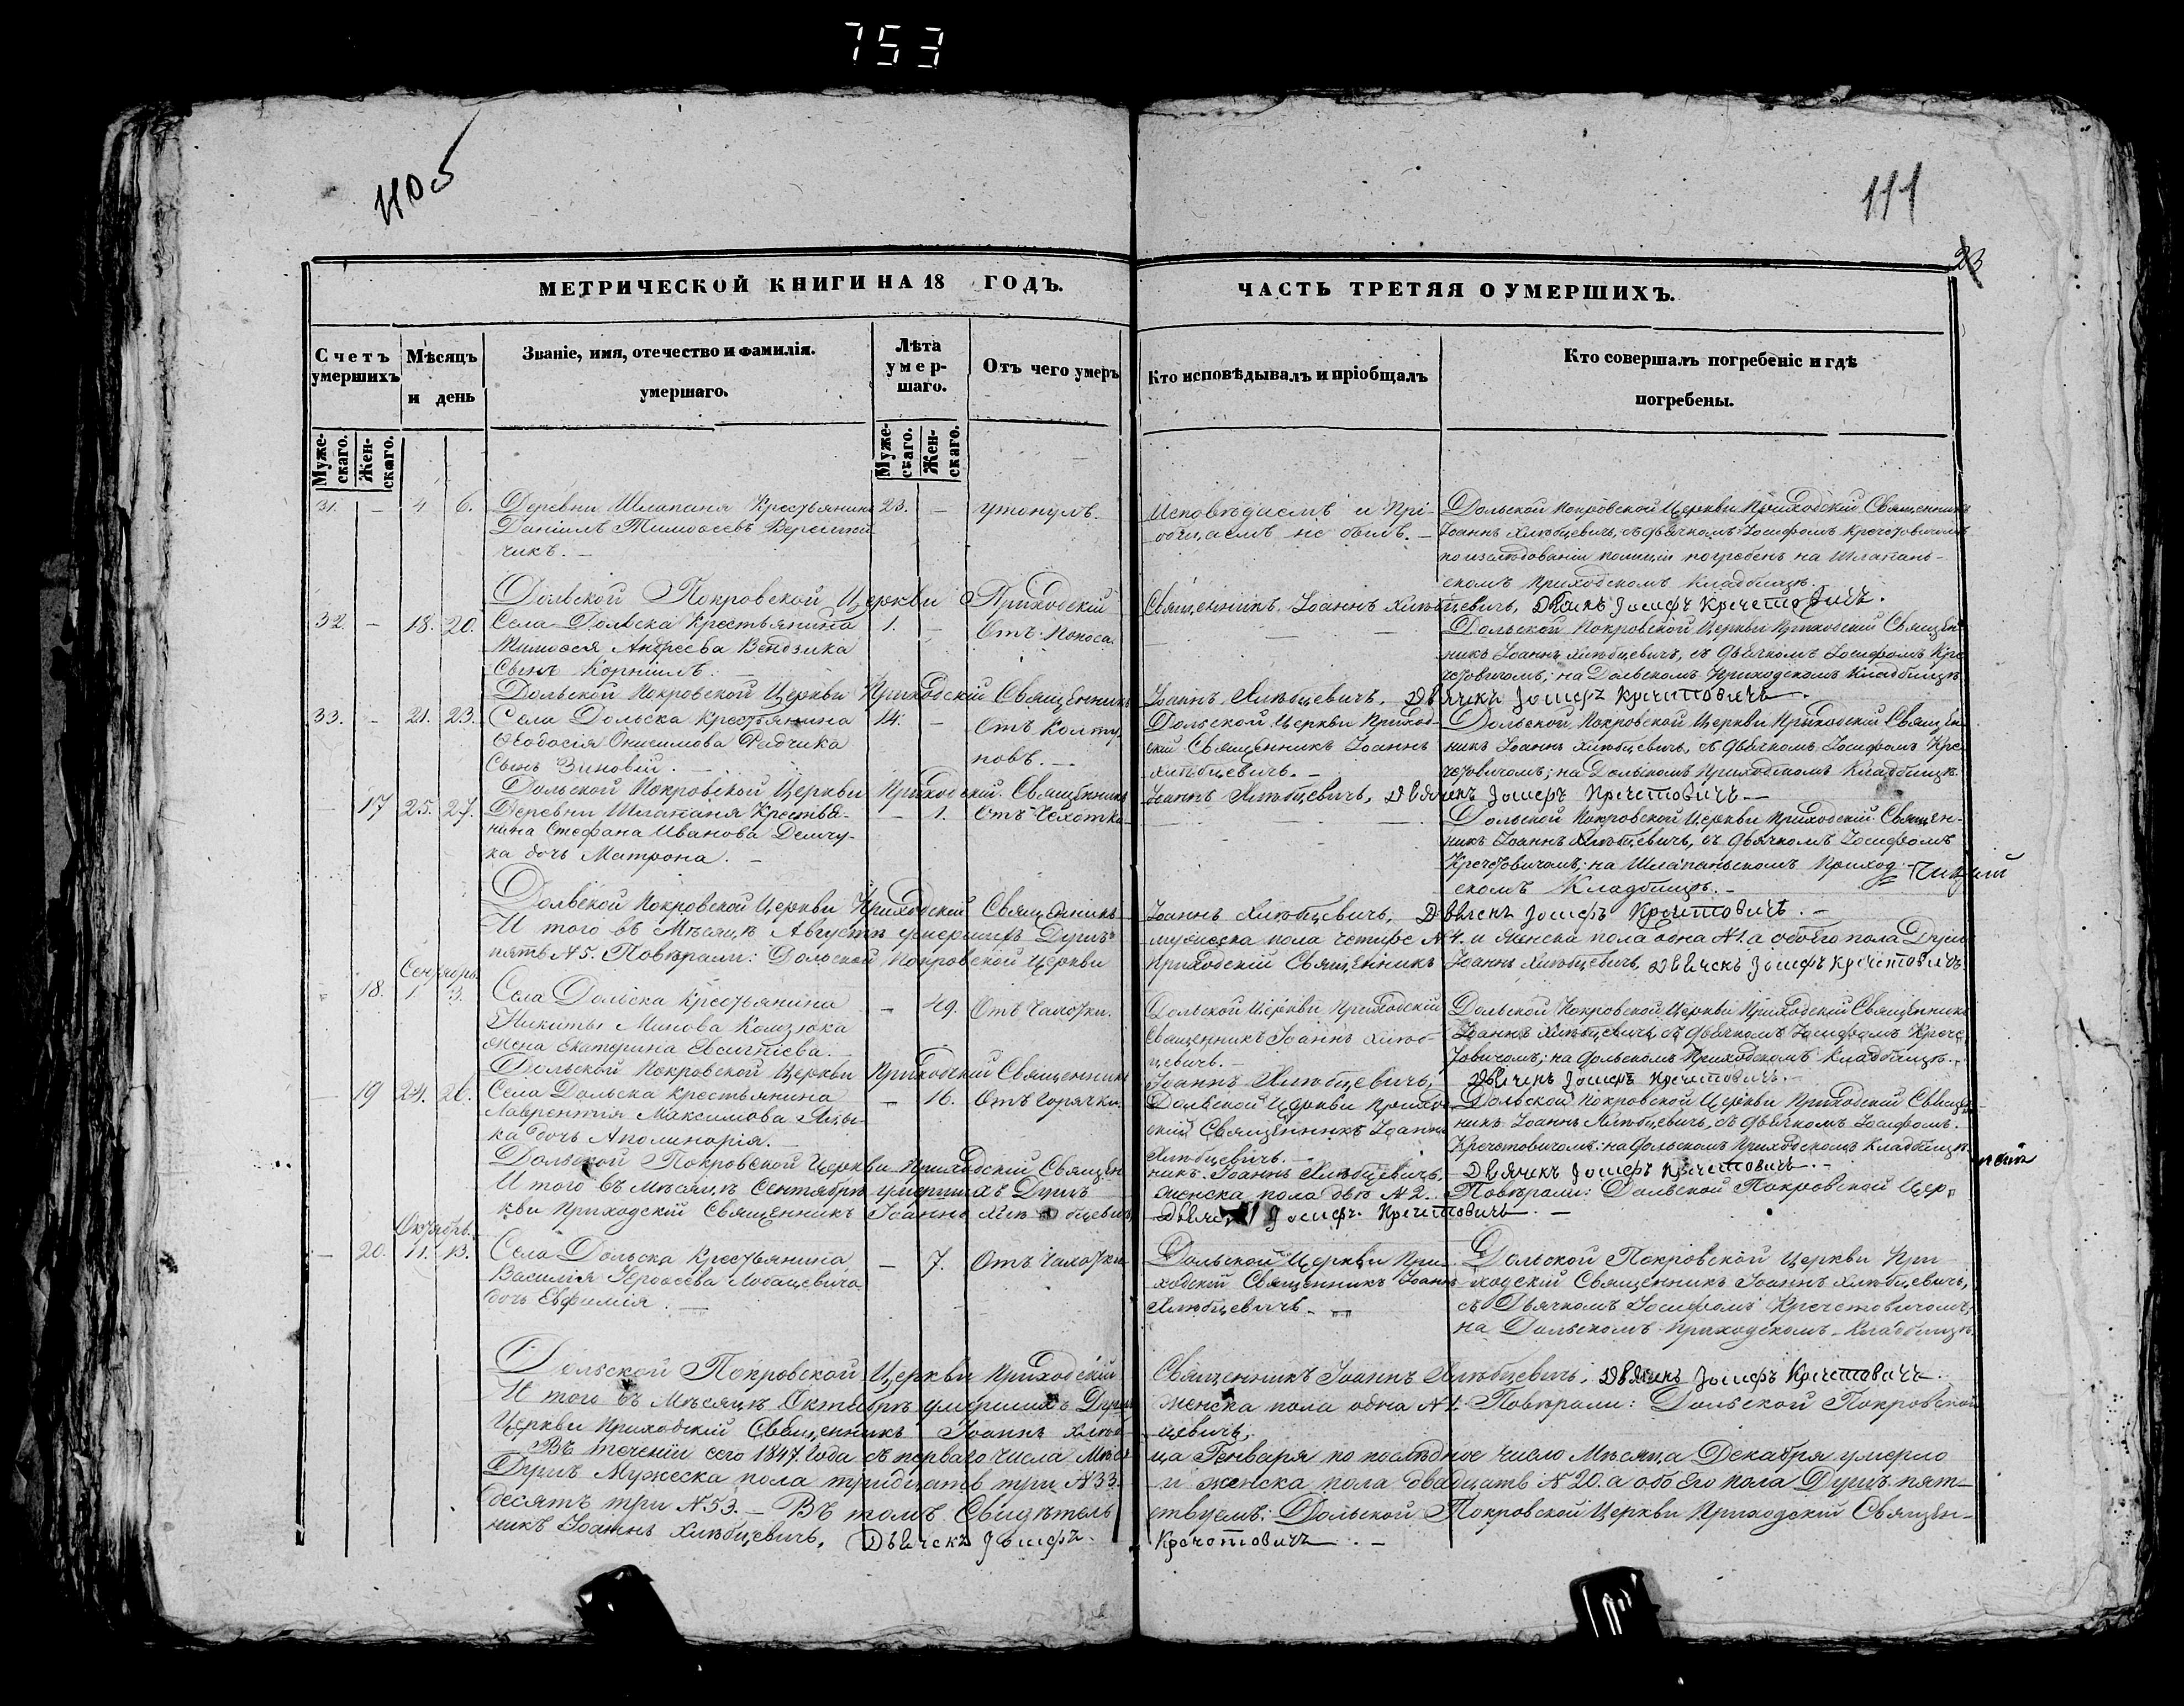 753
1105
111
23
МЕТРИЧЕСКОЙ КНИГИ НА 18 ГОДЪ.
ЧАСТЬ ТРЕТЯЯ О УМЕРШИХЪ.
Счетъ умершихъ
Мѣсяцъ и день
Званіе, имя, отечество и фамилія. умершаго.
Лѣта умершаго.
Отъ чего умеръ
Кто исповѣдывалъ и пріобщалъ
Кто совершалъ погребеніе и гдѣ погребены.
Мужескаго.
Женскаго.
Мужескаго.
Женскаго.
31. — 4 6. Деревни Шлапаня Крестьянинъ 23. — утонулъ. Исповѣдаемъ и прі- Дольской Покровской Церкви Приходскій Священникъ
Даніилъ Тимоѳеевъ общаемъ не былъ. — Іоаннъ Хлѣбцевичъ, съ дьячкомъ Іосифомъ Кречетовичомъ
чикъ. — по изслѣдованіи полиціи погребенъ на Шлапань-
скомъ приходскомъ кладбищѣ.
Дольской Покровской Церкви Приходскій Священникъ Іоаннъ Хлѣбцевичъ, Дьячекъ Іосифъ Кречетовичъ.
32. — 18. 20. Села Дольска Крестьянина 1. — Отъ поноса. — — — Дольской Покровской Церкви Приходскій Священ-
Тимоѳея Андреева Вендзика никъ Іоаннъ Хлѣбцевичъ, съ дьячкомъ Іосифомъ Кре-
Сынъ Корнилъ. — четовичомъ; на Дольскомъ Приходскомъ кладбищѣ
Дольской Покровской Церкви Приходскій Священникъ Іоаннъ Хлѣбцевичъ. Дьячекъ Іосифъ Кречетовичъ.
33. — 21. 23. Села Дольска Крестьянина 14. — Отъ колту- Дольской Церкви Приход- Дольской Покровской Церкви Приходскій Священ-
Ѳеодосія Онисимова Фадчика новъ. — скій Священникъ Іоаннъ никъ Іоаннъ Хлѣбцевичъ, съ дьячкомъ Іосифомъ Кре-
Сынъ Зиновій. — Хлѣбцевичъ. — четовичомъ; на Дольскомъ Приходскомъ кладбищѣ.
Дольской Покровской Церкви Приходскій Священникъ Іоаннъ Хлѣбцевичъ, Дьячекъ Іосифъ Кречетовичъ —
— 17 25. 27. Деревни Шлапаня Крестья- — 1. Отъ Чехотки — — — Дольской Покровской Церкви Приходскій Священ-
нина Стефана Иванова Демчу- никъ Іоаннъ Хлѣбцевичъ, съ дьячкомъ Іосифомъ
ка дочь Матрона. — Кречетовичомъ; на Шлапаньскомъ Приход-
скомъ Кладбищѣ. —
Дольской Покровской Церкви Приходскій Священникъ Іоаннъ Хлѣбцевичъ, Дьячекъ Іосифъ Кречетовичъ. —
И того въ Мѣсяцѣ Августѣ умершихъ Душъ мужеска пола четыре N 4. и женска пола одна N 1. а обоего пола Душъ
пять N 5. Повѣряли: Дольской Покровской Церкви Приходскій Священникъ Іоаннъ Хлѣбцевичъ, Дьячекъ Іосифъ Кречетовичъ.
Сентябрь.
18. 1. 3. Села Дольска Крестьянина — 49. Отъ Чахотки. Дольской Церкви Приходскій Дольской Покровской Церкви Приходскій Священникъ
Никиты Минова Комзюка Священникъ Іоаннъ Хлѣб- Іоаннъ Хлѣбцевичъ, съ дьячкомъ Іосифомъ Крече-
жена Екатерина Евсигніева. цевичъ. — товичомъ; на Дольскомъ Приходскомъ Кладбищѣ.
Дольской Покровской Церкви Приходскій Священникъ Іоаннъ Хлѣбцевичъ, Дьячекъ Іосифъ Кречетовичъ. —
— 19 24. 26. Села Дольска Крестьянина — 16. Отъ Горячки. Дольской Церкви Приход- Дольской Покровской Церкви Приходскій Священ-
Лаврентія Максимова скій Священникъ Іоаннъ никъ Іоаннъ Хлѣбцевичъ, съ дьячкомъ Іосифомъ
ка дочь Аполинарія. Хлѣбцевичъ. — Кречетовичомъ: на Дольскомъ Приходскомъ Кладбищѣ.
Дольской Покровской Церкви Приходскій Священникъ Іоаннъ Хлѣбцевичъ, Дьячекъ Іосифъ Кречетовичъ. —
И того въ Мѣсяцѣ Сентябрѣ умершихъ Душъ женска пола двѣ N 2. Повѣряли: Дольской Покровской Цер-
кви Приходскій Священникъ Іоаннъ Хлѣбцевичъ Дьячекъ Іосифъ Кречетовичъ. —
Октябрь.
— 20. 11. 13. Села Дольска Крестьянина — 7. Отъ Чахотки Дольской Церкви При- Дольской Покровской Церкви При-
Василія Ероѳеева Лобацевича ходскій Священникъ Іоаннъ ходскій Священникъ Іоаннъ Хлѣбцевичъ,
дочь Евфимія. — Хлѣбцевичъ. — съ Дьячкомъ Іосифомъ Кречетовичомъ,
на Дольскомъ Приходскомъ Кладбищѣ.
Дольской Покровской Церкви Приходскій Священникъ Іоаннъ Хлѣбцевичъ, Дьячекъ Іосифъ Кречетовичъ.
И того въ Мѣсяцѣ Октябрѣ умершихъ Душъ женска пола одна N 1. Повѣряли: Дольской Покровской
Церкви Приходскій Священникъ Іоаннъ Хлѣбцевичъ.
Въ теченіи сего 1847. Года съ перваго числа Мѣсяца Генваря по послѣдное число Мѣсяца Декабря умерло
Душъ Мужеска пола тридцать три N 33. и женска пола двадцать N 20. а обоего пола Душъ пят-
десятъ три N 53. — Въ томъ Свидѣтельствуемъ: Дольской Покровской Церкви Приходскій Священ-
никъ Іоаннъ Хлѣбцевичъ, Дьячекъ Іосифъ Кречетовичъ. —